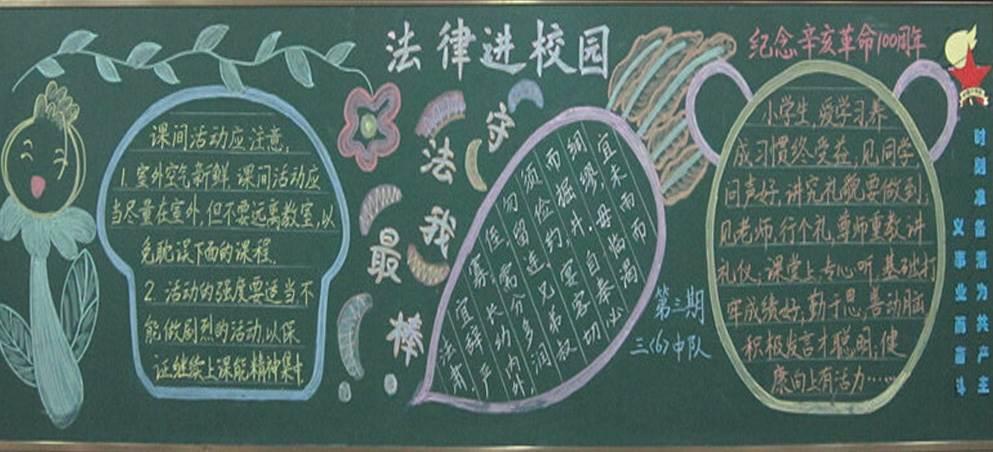 法律进校园
纪念辛亥革命100周年
课间活动应注意,
1. 室外空气新鲜,课间活动应
当尽量在室外,但不要远离教室,以
免耽误下面的课程.
2. 活动的强度要适当不
能做剧烈的活动,以保
证继续上课能精神集中.
守法我最棒
宜未雨而
绸缪,毋临渴
而掘井.自奉必
须俭约,宴客切
勿留连.兄弟叔
侄,需分多润
寡.长幼内外
宜辞严
法肃.
第三期
三(6)中队
小学生,爱学习,养
成习惯终受益,见同学
问声好,讲究礼貌要做到,
见老师,行个礼,尊师重教讲
礼仪;课堂上专心听,基础打
牢成绩好,勤于思,善动脑
积极发言才聪明;健
康向上有活力……
时刻准备着为共产主
义事业而奋斗